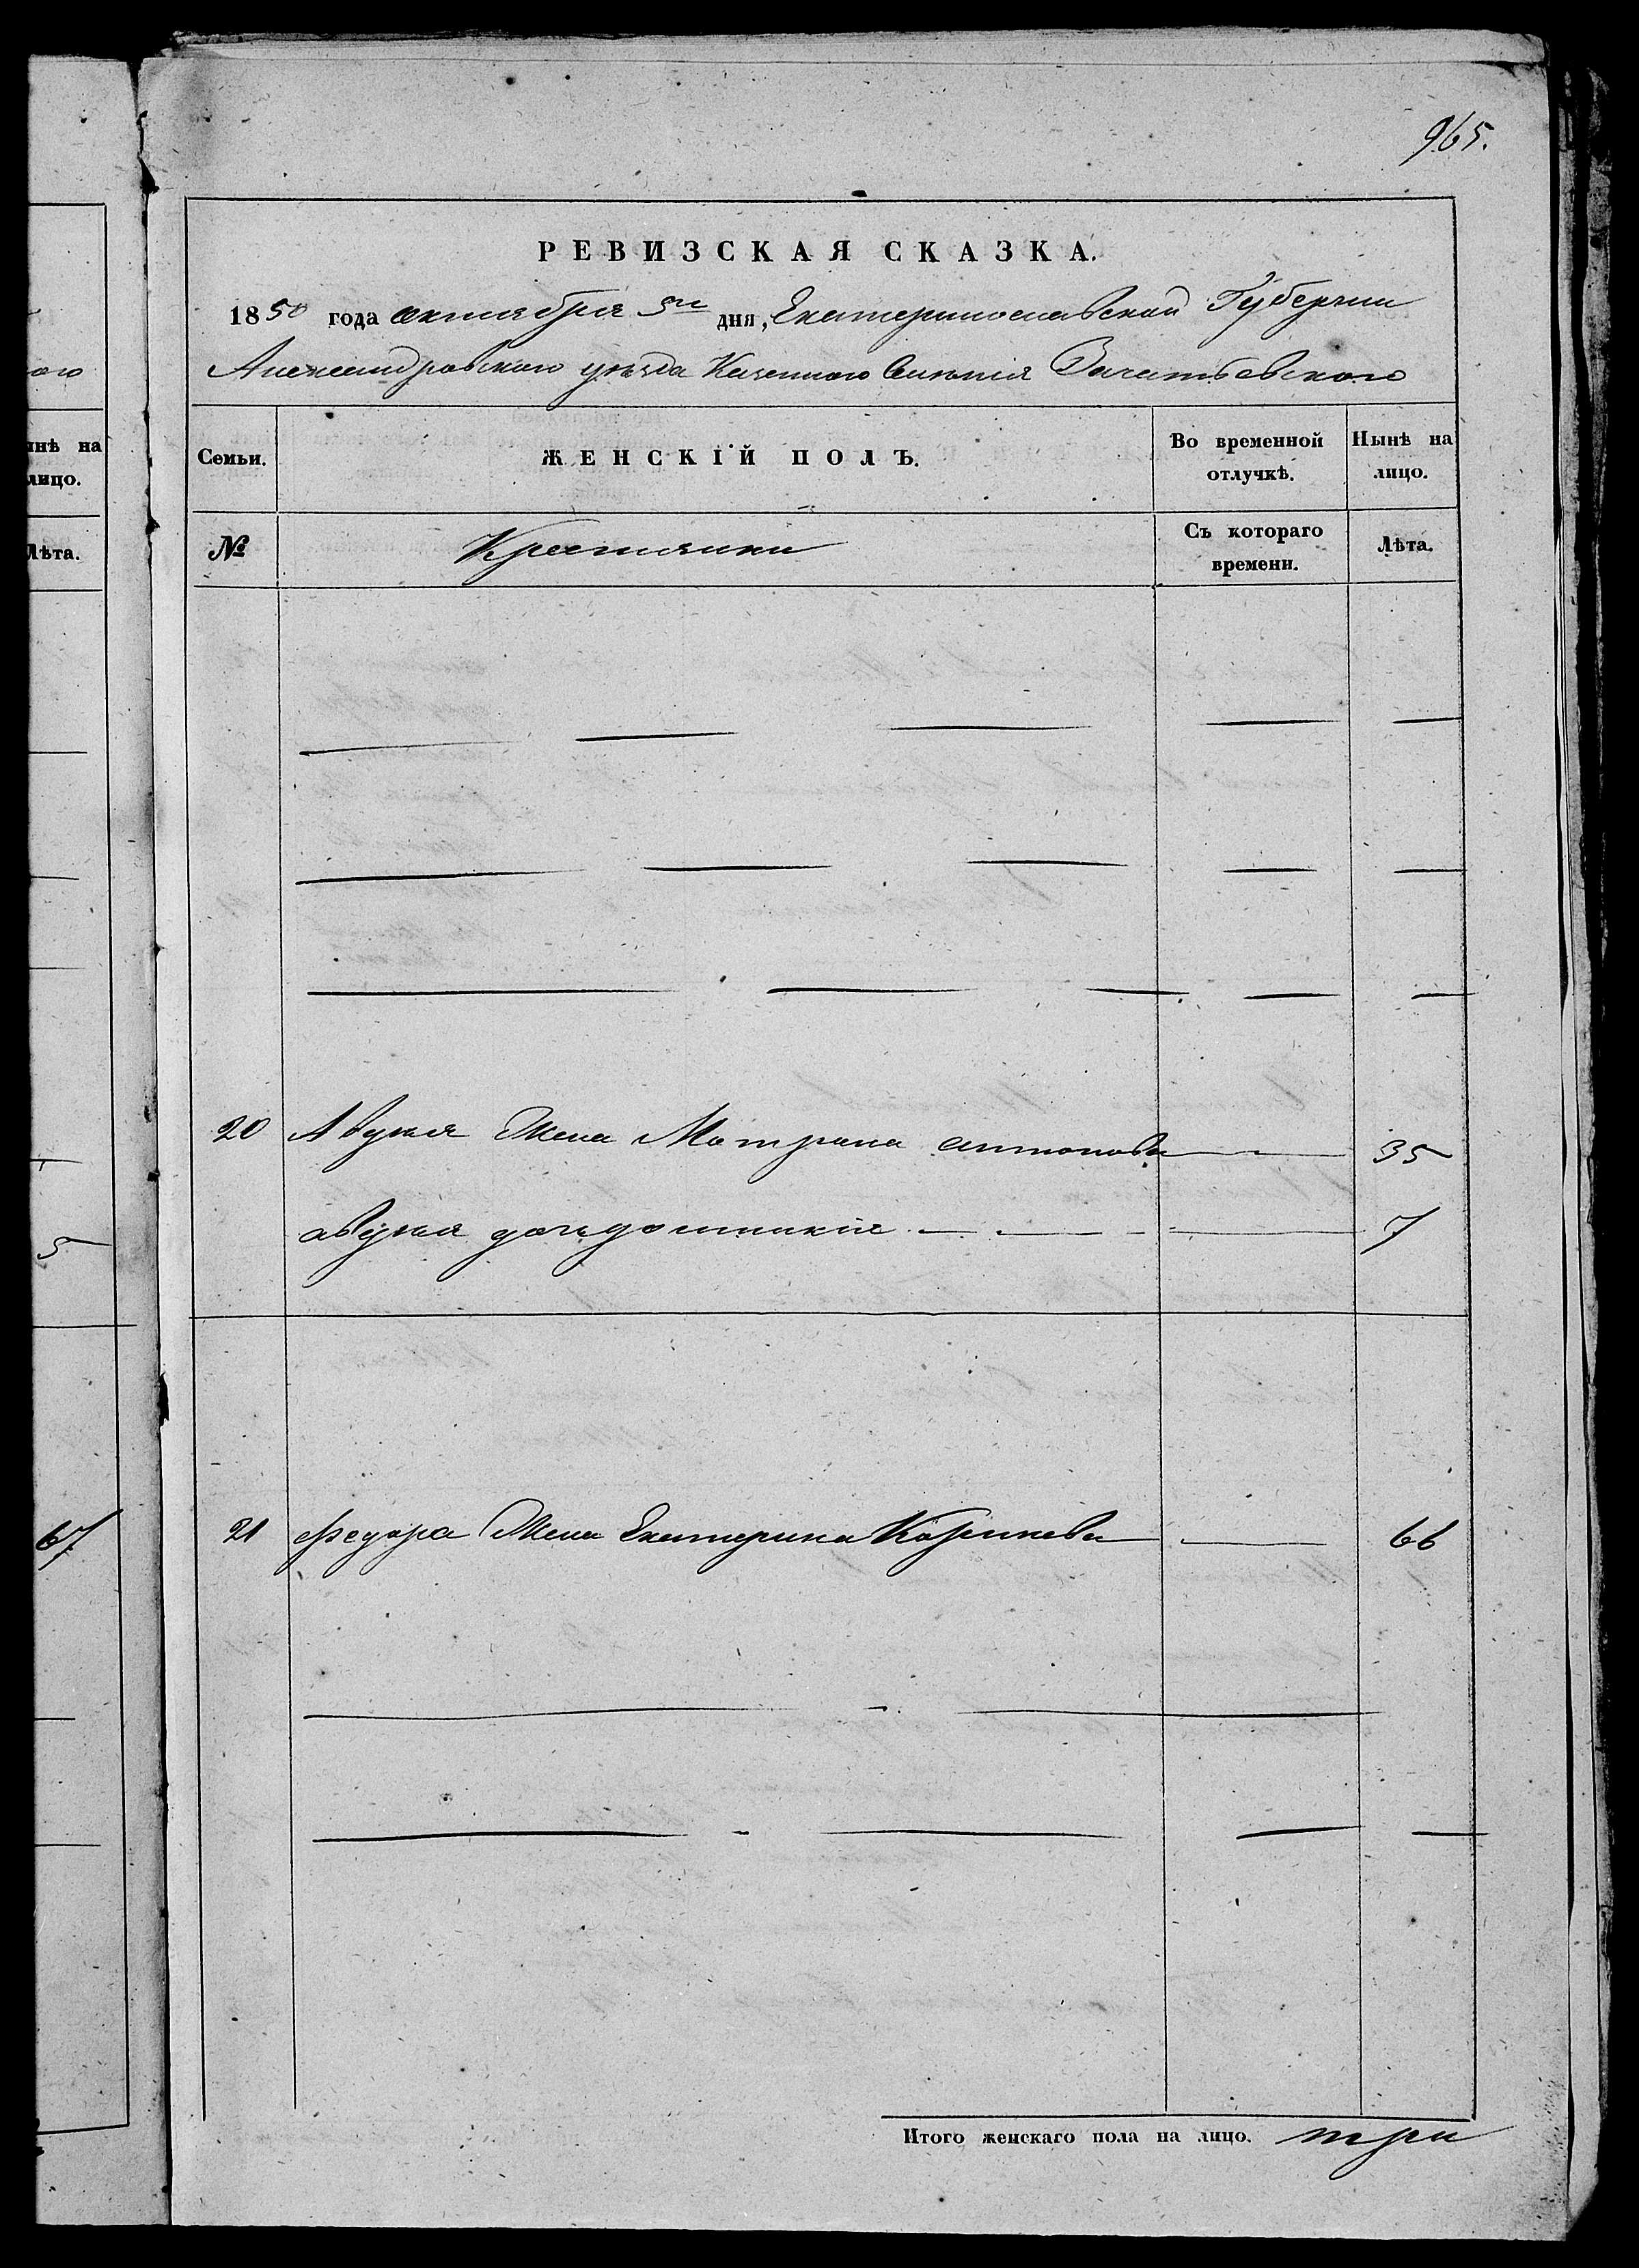 965.
РЕВИЗСКАЯ СКАЗКА.
1850 года октября 5го дня, Екатеринославской Губернии
Александровского уезда Казенного Селения Зачатьевского
ого
Семьи.
ЖЕНСКІЙ ПОЛЪ.
Во временной отлучкѣ.
Нынѣ на лицо.
нѣ на
лицо.
№
Крестьянки
Съ котораго времени.
Лѣта.
Лѣта.
20 Жена Матрона антонова 35
дочь 7
5
21 Федора Жена Екатерина 66
67
Итого женскаго пола на лицо. три